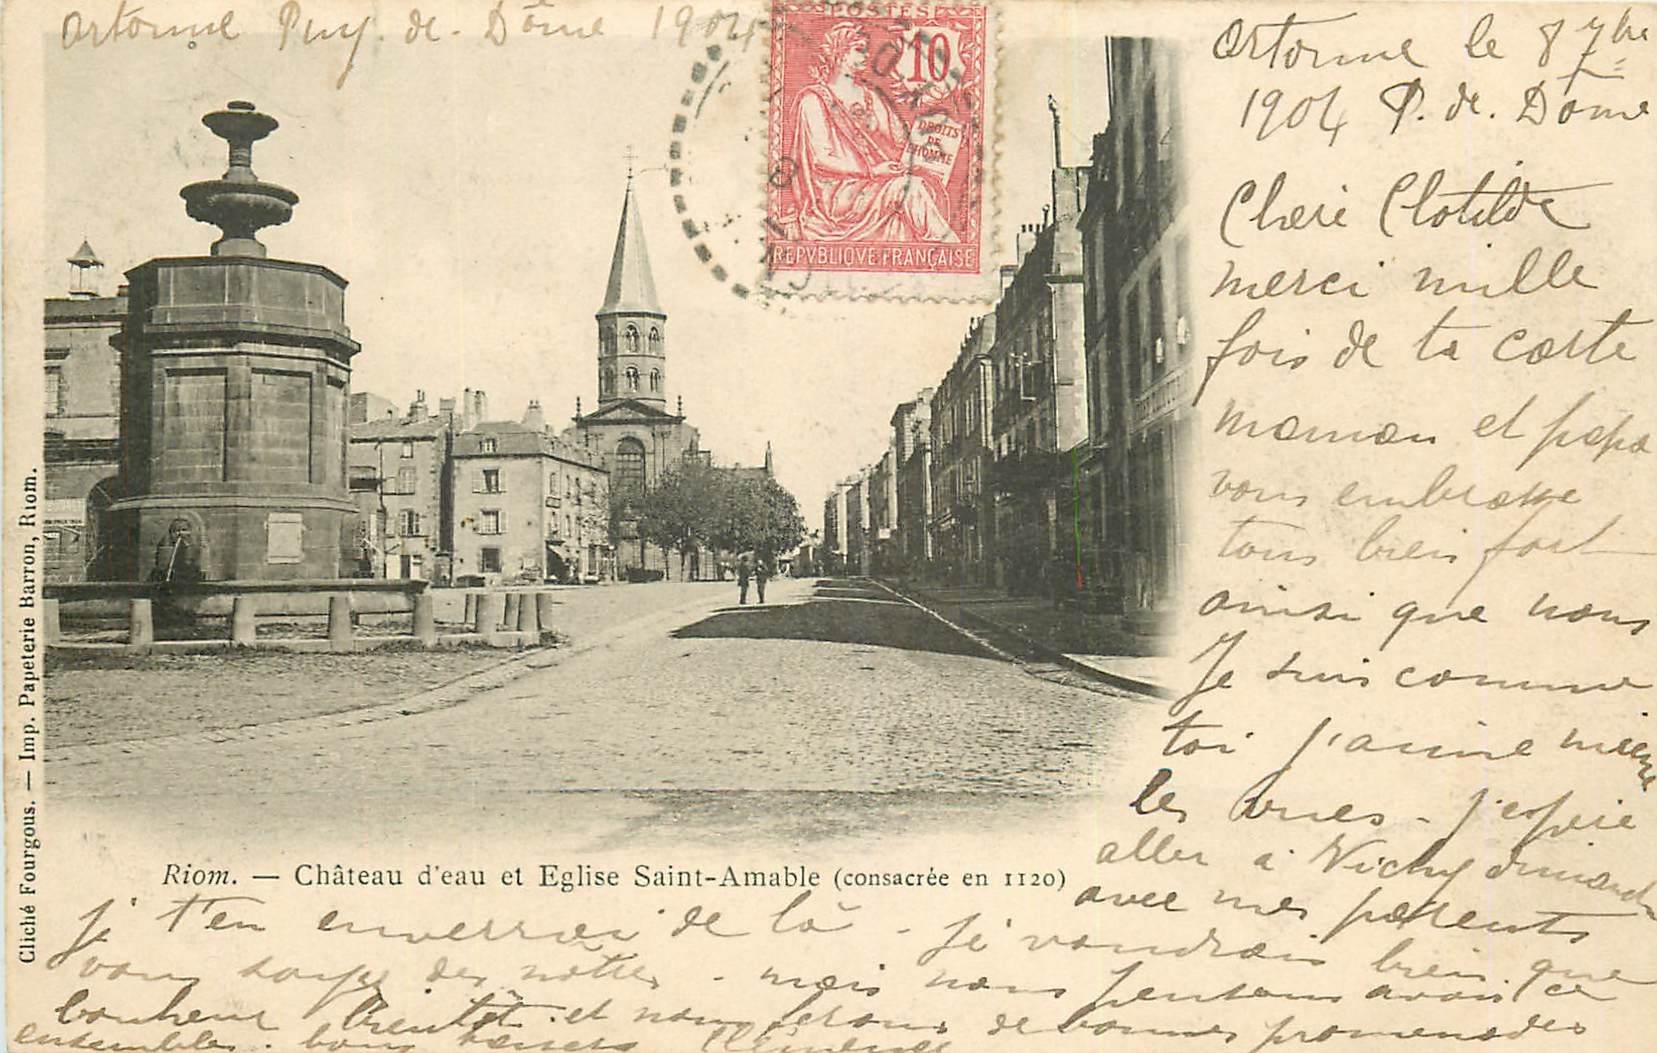 Artonne Puy. de. Dôme 1904
POSTES
10
DROITS
DE
L'HOMME
REPVBLIQVE FRANÇAISE
Artonne le 8 7bre
1904 P. de. Dôme
Chère Clotilde
merci mille
fois de ta carte
maman et papa
vous embrasse
tous bien fort
ainsi que nous
Je suis comme
toi j'aime mieux
les vues - j'espère
aller à Vichy dimanche
avec mes parents
je t'en enverrai de là - je voudrais bien que
vous soyez des nôtres - mais nous pensons avoir ce
bonheur bientôt et nous ferons de bonnes promenades
ensembles. bons baisers Clémence
Riom. — Château d'eau et Eglise Saint-Amable (consacrée en 1120)
Cliché Fourgous. — Imp. Papeterie Barron, Riom.